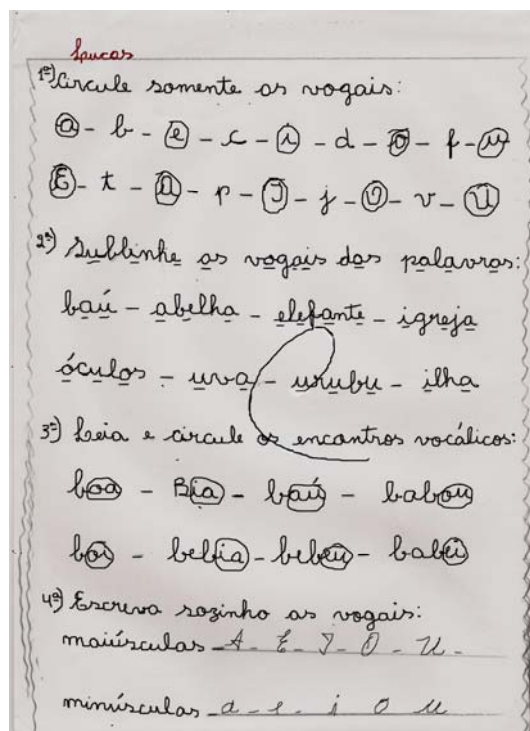 Lucas
1º) Circule somente as vogais:
a - b - e - c - i - d - o - f - u
E - t - A - p - I - j - O - v - U
2º) Sublinhe as vogais das palavras:
baú - abelha - elefante - igreja
óculos - uva - urubu - ilha
3º) Leia e circule os encontros vocálicos:
boa - Bia - baú - babou
boi - bebia - bebeu - babei
4º) Escreva sozinho as vogais:
maiúsculas A - E - I - O - U -
minúsculas a - e - i o u